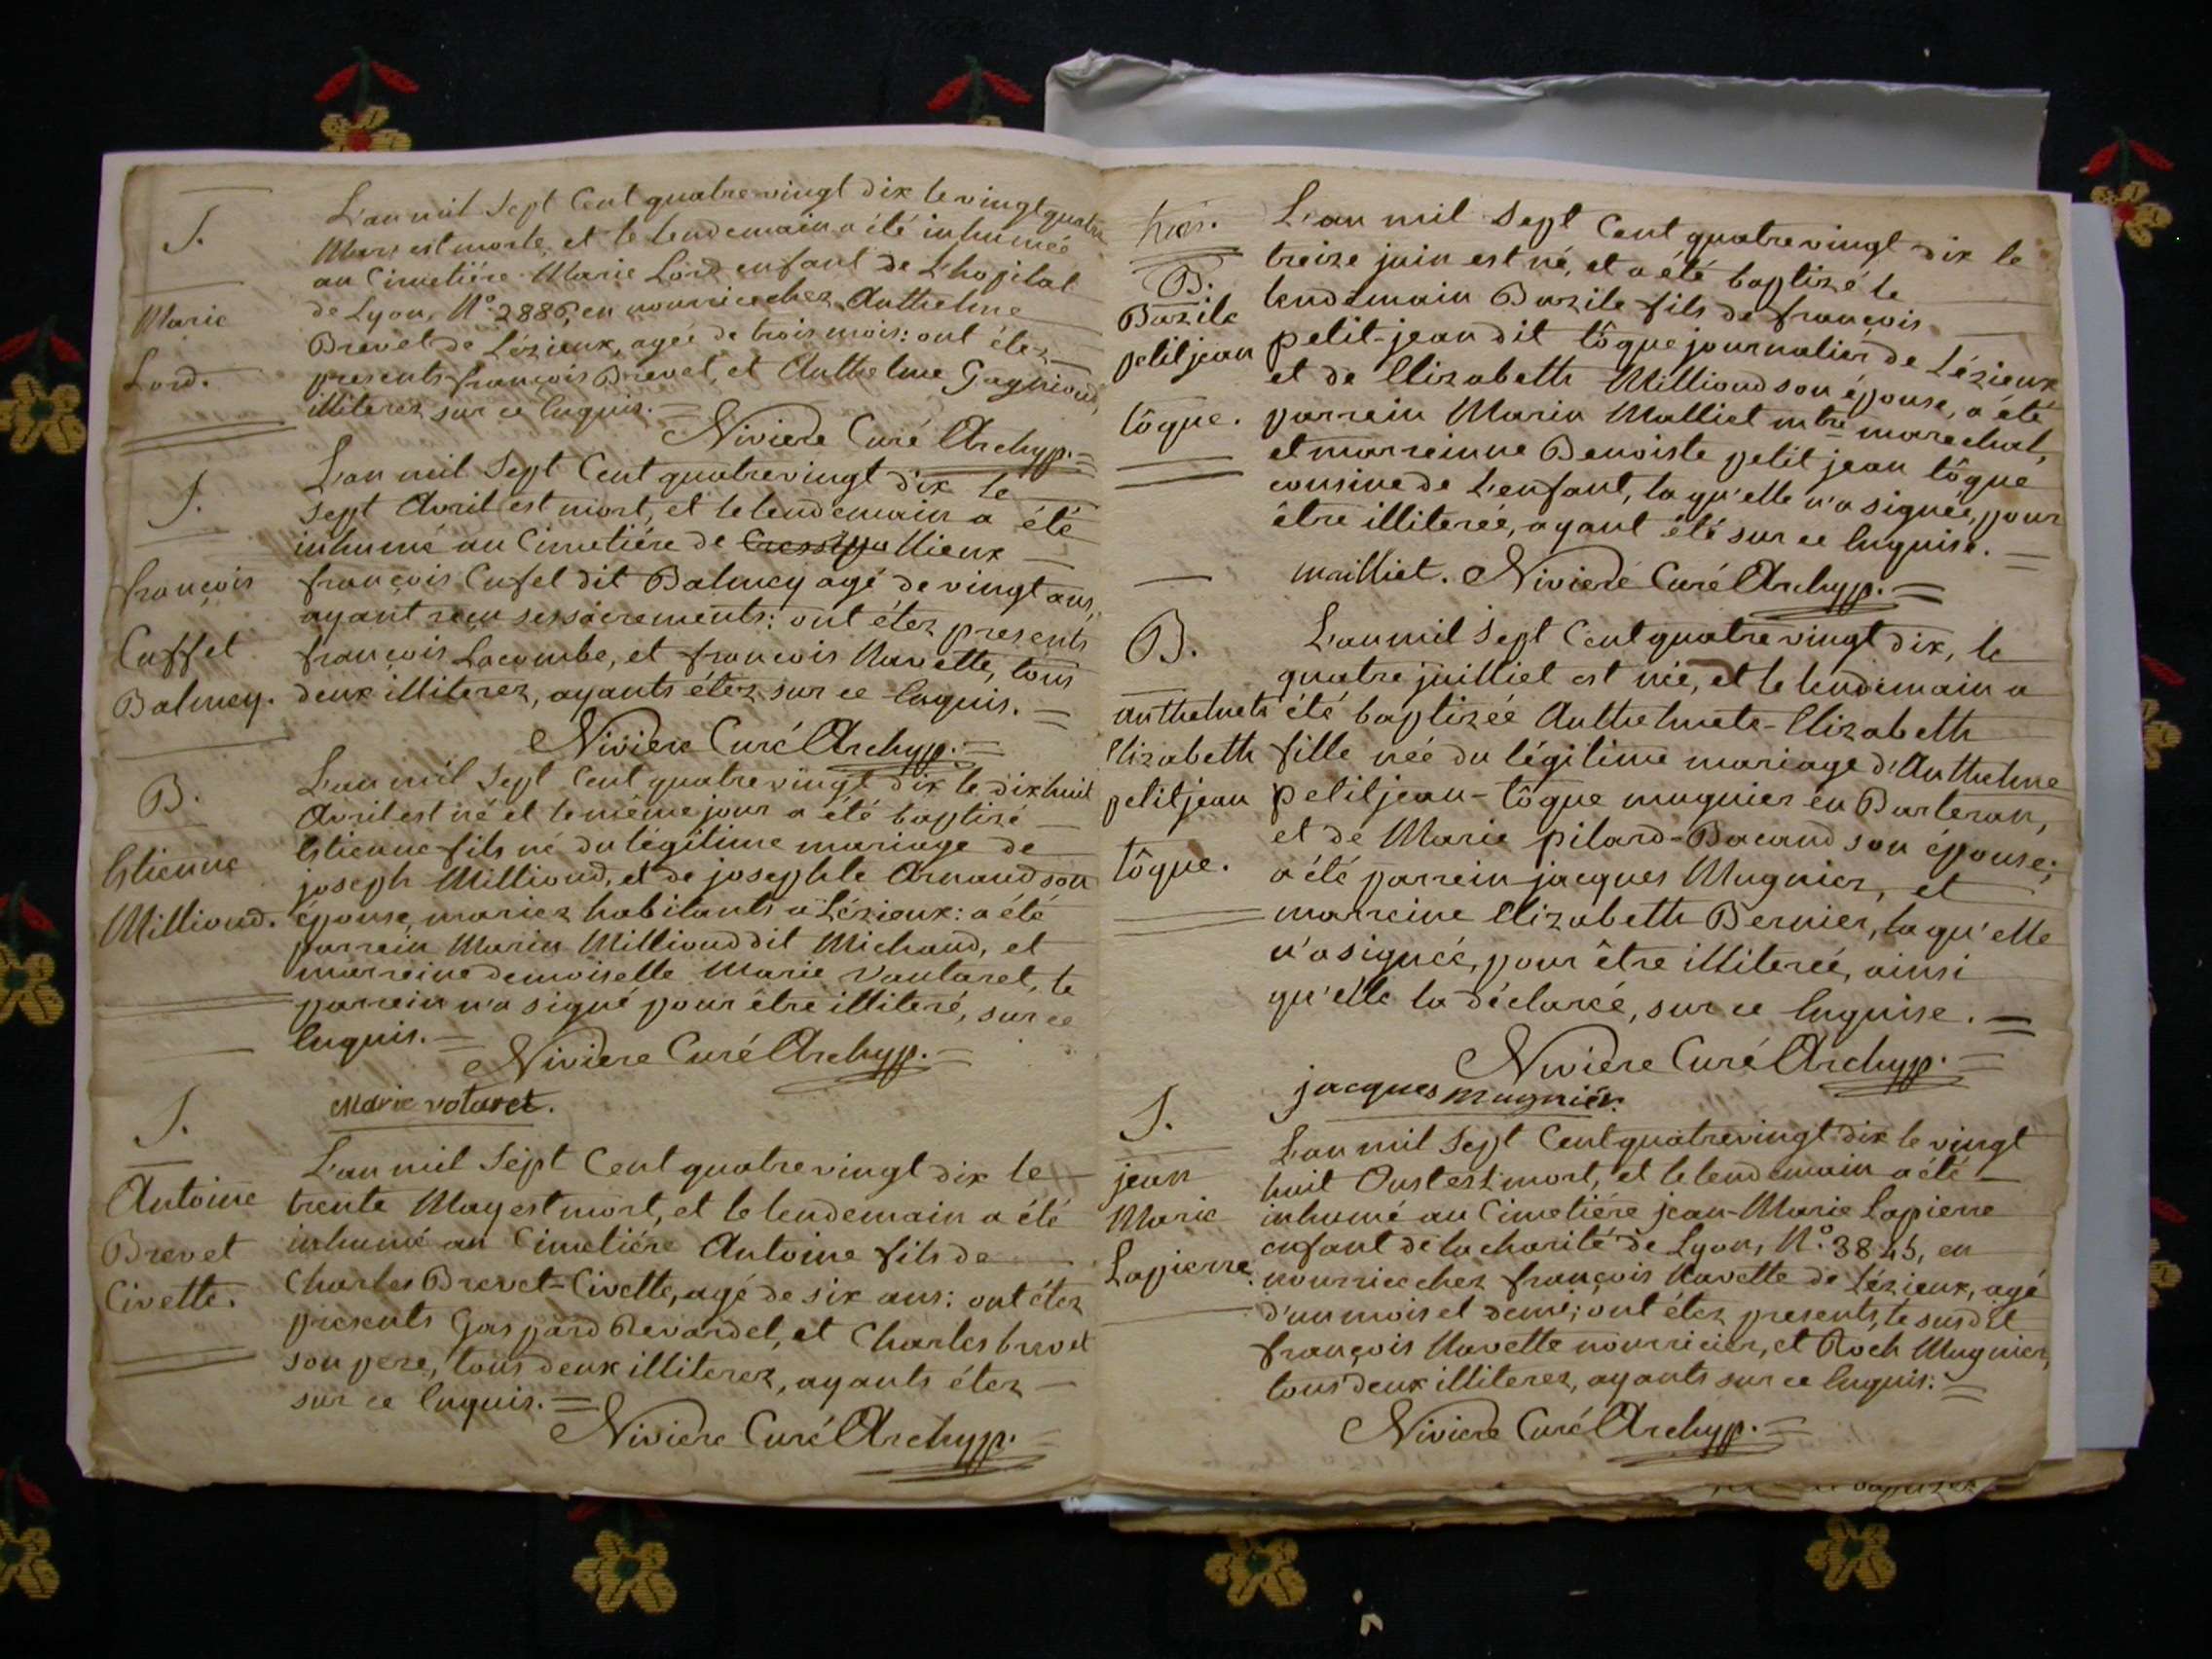 S.
Marie
Lord.
L'an mil Sept Cent quatre vingt dix le vingt quatre
Mars est morte, et le lendemain a été inhumée
au Cimetiére Marie Lord enfant de L'hopital
de Lyon, N.° 2886, en nourrice chez Anthelme
Brevet de Lézieux, agée de trois mois: ont étez
presents françois Brevet, et Anthelme Gagnioud,
illiterez sur ce Enquis. =
Niviere Curé Archyp. =
S.
françois
Cuffet
Balmey.
L'an mil Sept Cent quatre vingt dix le
Sept Avril est mort, et le lendemain a été
inhumé au Cimetiére de Llieux
françois Cufet dit Balmey agé de vingt ans,
ayant reçu ses sacrements: ont étez presents
françois Lacombe, et françois Navette, tous
deux illiterez, ayants étez sur ce Enquis. =
Niviere Curé Archyp. =
B.
Estienne
Millioud.
L'an mil Sept Cent quatre vingt dix le dix huit
Avril est né et le même jour a été baptizé
Estienne fils né du légitime mariage de
joseph Millioud, et de josephte Arnaud son
épouse, mariez habitants a Lézieux: a été
parrein Marin Millioud dit Michaud, et
marreine demoiselle Marie Vautaret, le
parrein n'a signé pour être illiteré, sur ce
Enquis. =
Niviere Curé Archyp. =
Marie votaret.
S.
Antoine
Brevet
Civette.
L'an mil Sept Cent quatre vingt dix le
trente May est mort, et le lendemain a été
inhumé au Cimetiére Antoine fils de
Charles Brevet-Civette, agé de six ans: ont étez
presents Gaspard Revardet, et Charles brevet
son pere, tous deux illiterez, ayants étez
sur ce Enquis. =
Niviere Curé Archyp. =
B.
Bazile
petit jean
tôque.
L'an mil Sept Cent quatre vingt dix le
treize juin est né, et a été baptizé le
lendemain Bazile fils de françois
petit-jean dit tôque journalier de Lézieux
et de Elizabeth Millioud son épouse, a été
parrein Marin Malliet mtre marechal,
et marreinne Benoiste petit jean tôque
cousine de L'enfant, la qu'elle n'a signée, pour
être illiterée, ayant été sur ce Enquise. =
mailliet. Niviere Curé Archyp. =
B.
Anthelmete
Elizabeth
petit jean
tôque.
L'an mil Sept Cent quatre vingt dix, le
quatre juilliet est née, et le lendemain a
été baptizée Anthelmete-Elizabeth
fille née du légitime mariage d'Anthelme
petit jean-tôque mugnier en Barteran,
et de Marie pilard-Bacand son épouse;
a été parrein jacques Mugnier, et
marreine Elizabeth Bernier, la qu'elle
n'a signée, pour être illiterée, ainsi
qu'elle la déclarée, sur ce Enquise. =
Niviere Curé Archyp. =
jacques mugnier.
S.
jean
Marie
Lapierre.
L'an mil Sept Cent quatre vingt dix le vingt
huit Oust est mort, et le lendemain a été
inhumé au Cimetiére jean-Marie Lapierre
enfant de la charité de Lyon, N.° 3845, en
nourrice chez françois Navette de Lézieux, agé
d'un mois et demi; ont étez presents, le susdit
françois Navette nourricier, et Roch Mugnier,
tous deux illiterez, ayants sur ce Enquis: =
Niviere Curé Archyp. =